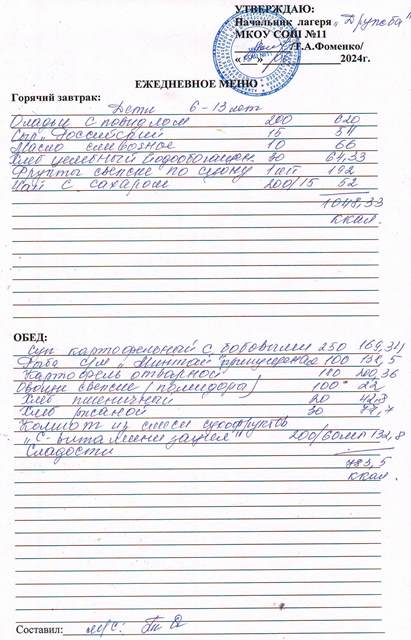 УТВЕРЖДАЮ:
Начальник лагеря „Дружба"
МКОУ СОШ №11
/Т.А.Фоменко/
2024г.
ЕЖЕДНЕВНОЕ МЕНЮ
Горячий завтрак:
Дети 6-13 лет
Оладьи с повидлом 200 620
Сыр „Российский 15 54
Масло сливочное 10 66
Хлеб целебный йодообогащен. 30 64,33
Фрукты свежие по сезону 1шт 192
Чай с сахаром 200/15 52
1048,33
ккал.
ОБЕД:
Суп картофельный с бобовыми 250 169,34
Рыба с/м „Минтай" припущенная 100 132,5
Картофель отварной 180 200,36
Овощи свежие (помидора) 100 22
Хлеб пшеничный 20 42,8
Хлеб ржаной 30
Компот из смеси сухофруктов
„С-витаминизация" 200/60мл 132,8
Сладости
783,5
ккал.
Составил: м/с: